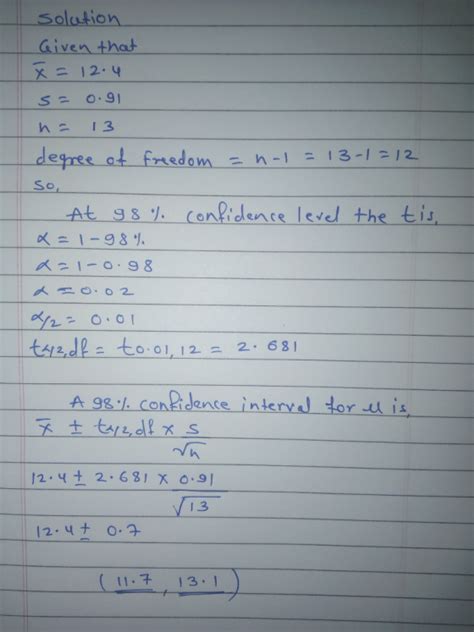 Solution
Given that
x̄ = 12.4
s = 0.91
n = 13
degree of freedom = n-1 = 13-1 = 12
so,
At 98% confidence level the t is,
α = 1-98%
α = 1-0.98
α = 0.02
α/2 = 0.01
tα/2,df = t0.01,12 = 2.681
A 98% confidence interval for μ is,
x̄ ± tα/2,df × s/√n
12.4 ± 2.681 × 0.91/√13
12.4 ± 0.7
(11.7, 13.1)